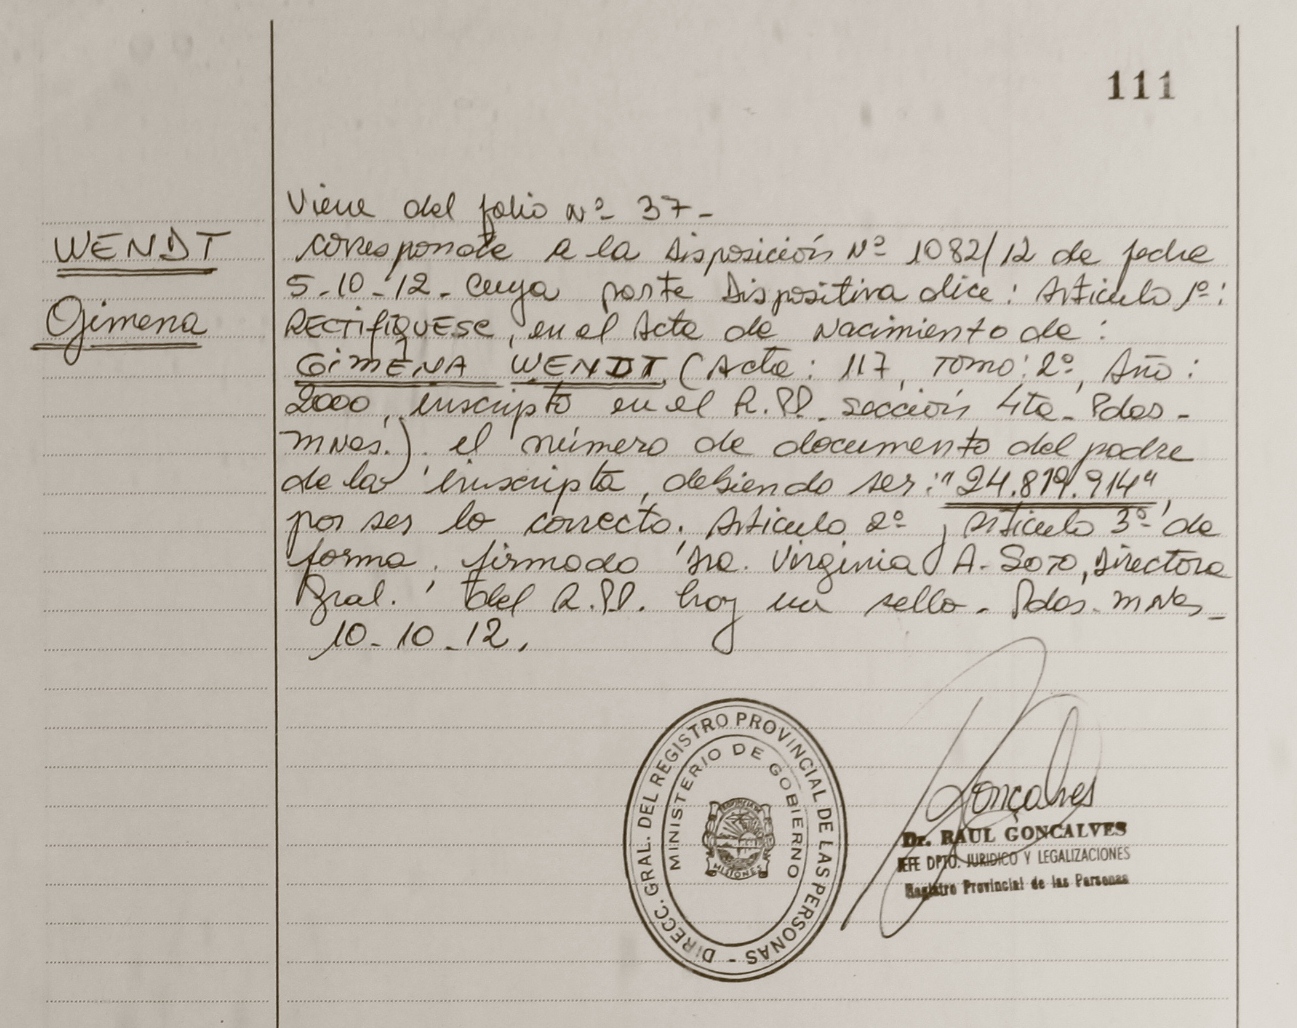 111
Viene del folio Nº 37-
WENDT
Gimena
corresponde a la Disposición Nº 1082/12 de fecha
5-10-12. Cuya parte Dispositiva dice: Artículo 1º:
RECTIFIQUESE, en el Acta de Nacimiento de:
GIMENA WENDT (Acta: 117, Tomo: 2º, Año:
2000, inscripto en el R.PP. sección 4ta- Pdas-
mnes.). el número de documento del padre
de la inscripta, debiendo ser: "24.819.914"
por ser lo correcto. Artículo 2º, Artículo 3º de
forma. firmado Dra. Virginia A. Soto, Directora
Gral. del R.PP. hay un sello- Pdas. mnes-
10-10-12.
DIRECC. GRAL. DEL REGISTRO PROVINCIAL DE LAS PERSONAS -
MINISTERIO DE GOBIERNO
PROVINCIA DE
MISIONES
Gonçalves
Dr. RAUL GONCALVES
JEFE DPTO. JURIDICO Y LEGALIZACIONES
Registro Provincial de las Personas